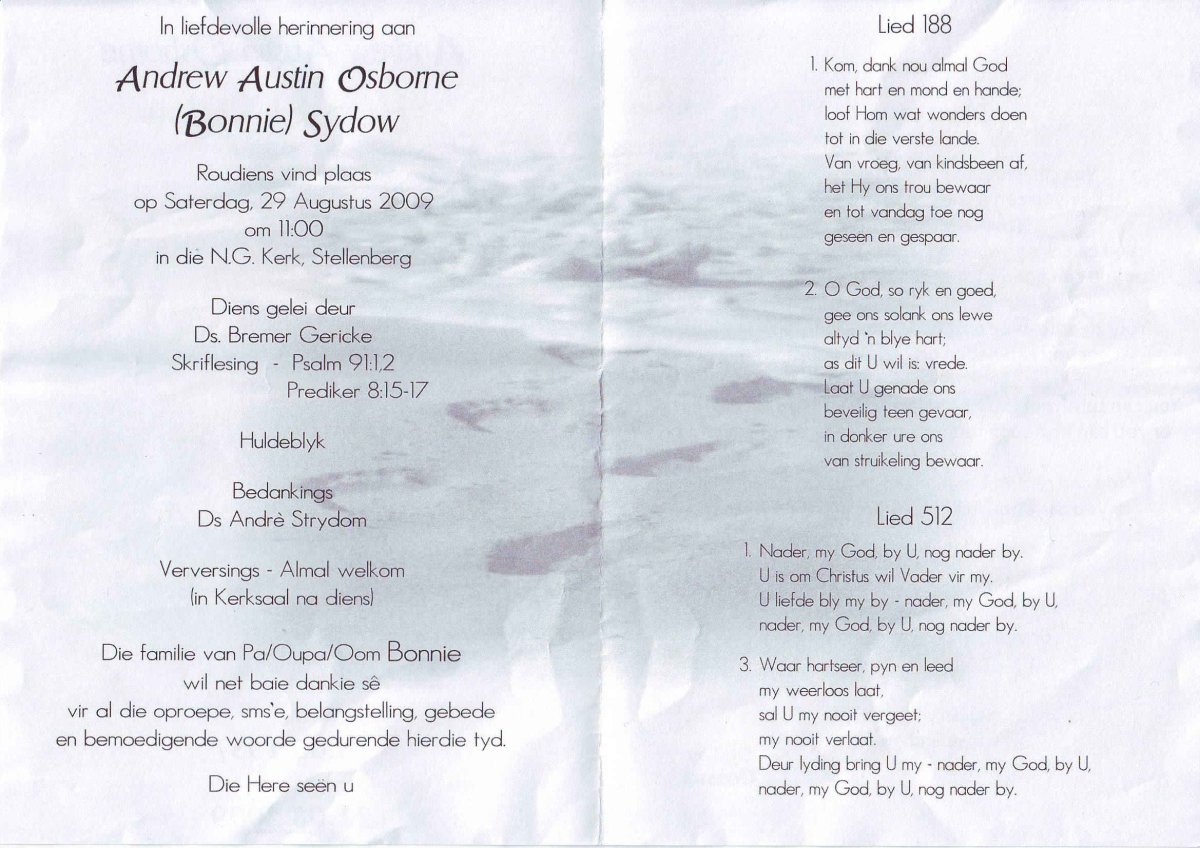 In liefdevolle herinnering aan
Andrew Austin Osborne
(Bonnie) Sydow
Roudiens vind plaas
op Saterdag, 29 Augustus 2009
om 11:00
in diè N.G. Kerk, Stellenberg
Diens gelei deur
Ds. Bremer Gericke
Skriflesing - Psalm 91:1,2
Prediker 8:15-17
Huldeblyk
Bedankings
Ds Andrè Strydom
Verversings - Almal welkom
(in Kerksaal na diens)
Die familie van Pa/Oupa/Oom Bonnie
wil net baie dankie sê
vir al die oproepe, sms`e, belangstelling, gebede
en bemoedigende woorde gedurende hierdie tyd.
Die Here seën u
Lied 188
1. Kom, dank nou almal God
met hart en mond en hande;
loof Hom wat wonders doen
tot in die verste lande.
Van vroeg, van kindsbeen af,
het Hy ons trou bewaar
en tot vandag toe nog
geseen en gespaar.
2. O God, so ryk en goed,
gee ons solank ons lewe
altyd `n blye hart;
as dit U wil is: vrede.
Laat U genade ons
beveilig teen gevaar,
in donker ure ons
van struikeling bewaar.
Lied 512
1. Nader, my God, by U, nog nader by.
U is om Christus wil Vader vir my.
U liefde bly my by - nader, my God, by U,
nader, my God, by U, nog nader by.
3. Waar hartseer, pyn en leed
my weerloos laat,
sal U my nooit vergeet;
my nooit verlaat.
Deur lyding bring U my - nader, my God, by U,
nader, my God, by U, nog nader by.